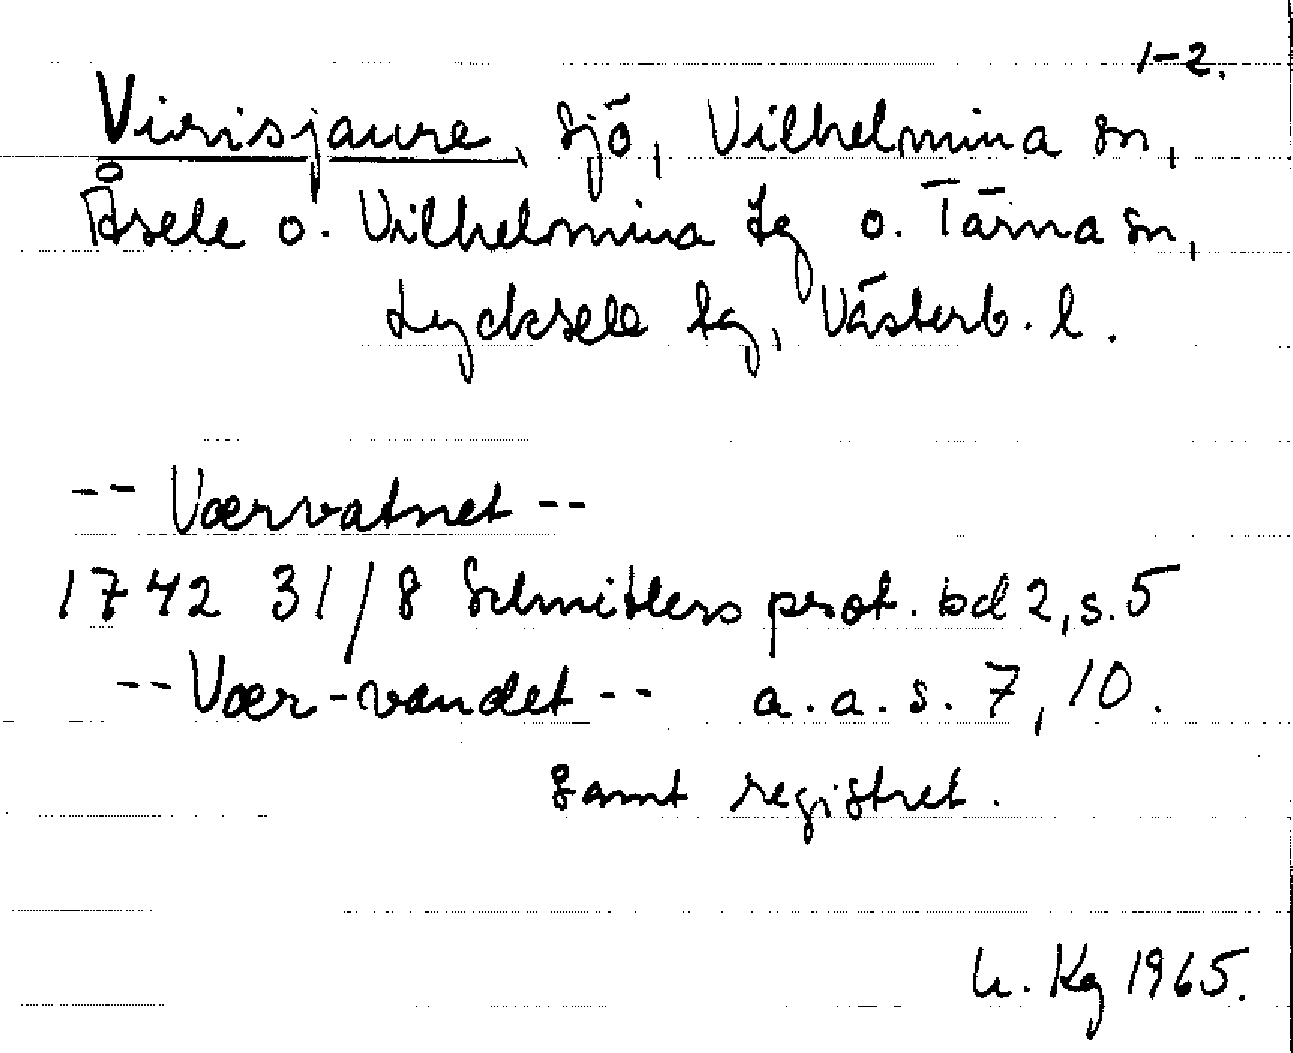 1-2.
Virisjaure, sjö, Vilhelmina sn,
Åsele o. Vilhelmina tg o. Tärna sn,
Lycksele tg, Västerb. l.
-- Værvatnet --
1742 31/8 Schnitlers prot. bd 2, s. 5
-- Vær-vandet -- a. a. s. 7, 10.
samt registret.
h. Kg 1965.